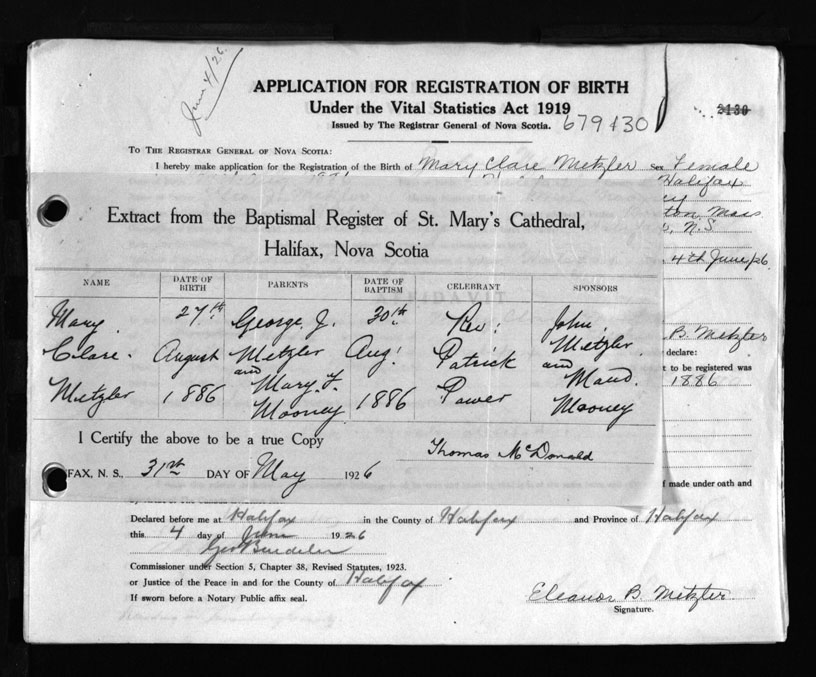 June 4/26.
APPLICATION FOR REGISTRATION OF BIRTH
Under the Vital Statistics Act 1919
2130
Issued by The Registrar General of Nova Scotia.
679430
TO THE REGISTRAR GENERAL OF NOVA SCOTIA:
I hereby make application for the Registration of the Birth of Mary Clare Metzler Sex Female
Halifax
Mass
N.S
4th June/26
Extract from the Baptismal Register of St. Mary's Cathedral,
Halifax, Nova Scotia
NAME DATE OF BIRTH PARENTS DATE OF BAPTISM CELEBRANT SPONSORS
Mary 27th George J. 30th Rev: John
Clare. August Metzler Aug! Patrick Metzler
and and
Metzler 1886 Mary F. 1886 Power Maud
Mooney Mooney
B. Metzler
declare:
t to be registered was
1886
I Certify the above to be a true Copy
Thomas McDonald
FAX, N. S., 31st DAY OF May 1926
f made under oath and
Declared before me at Halifax in the County of Halifax and Province of Halifax
this 4 day of June 1926
Commissioner under Section 5, Chapter 38, Revised Statutes, 1923.
or Justice of the Peace in and for the County of Halifax
If sworn before a Notary Public affix seal.
Eleanor B. Metzler
Signature.